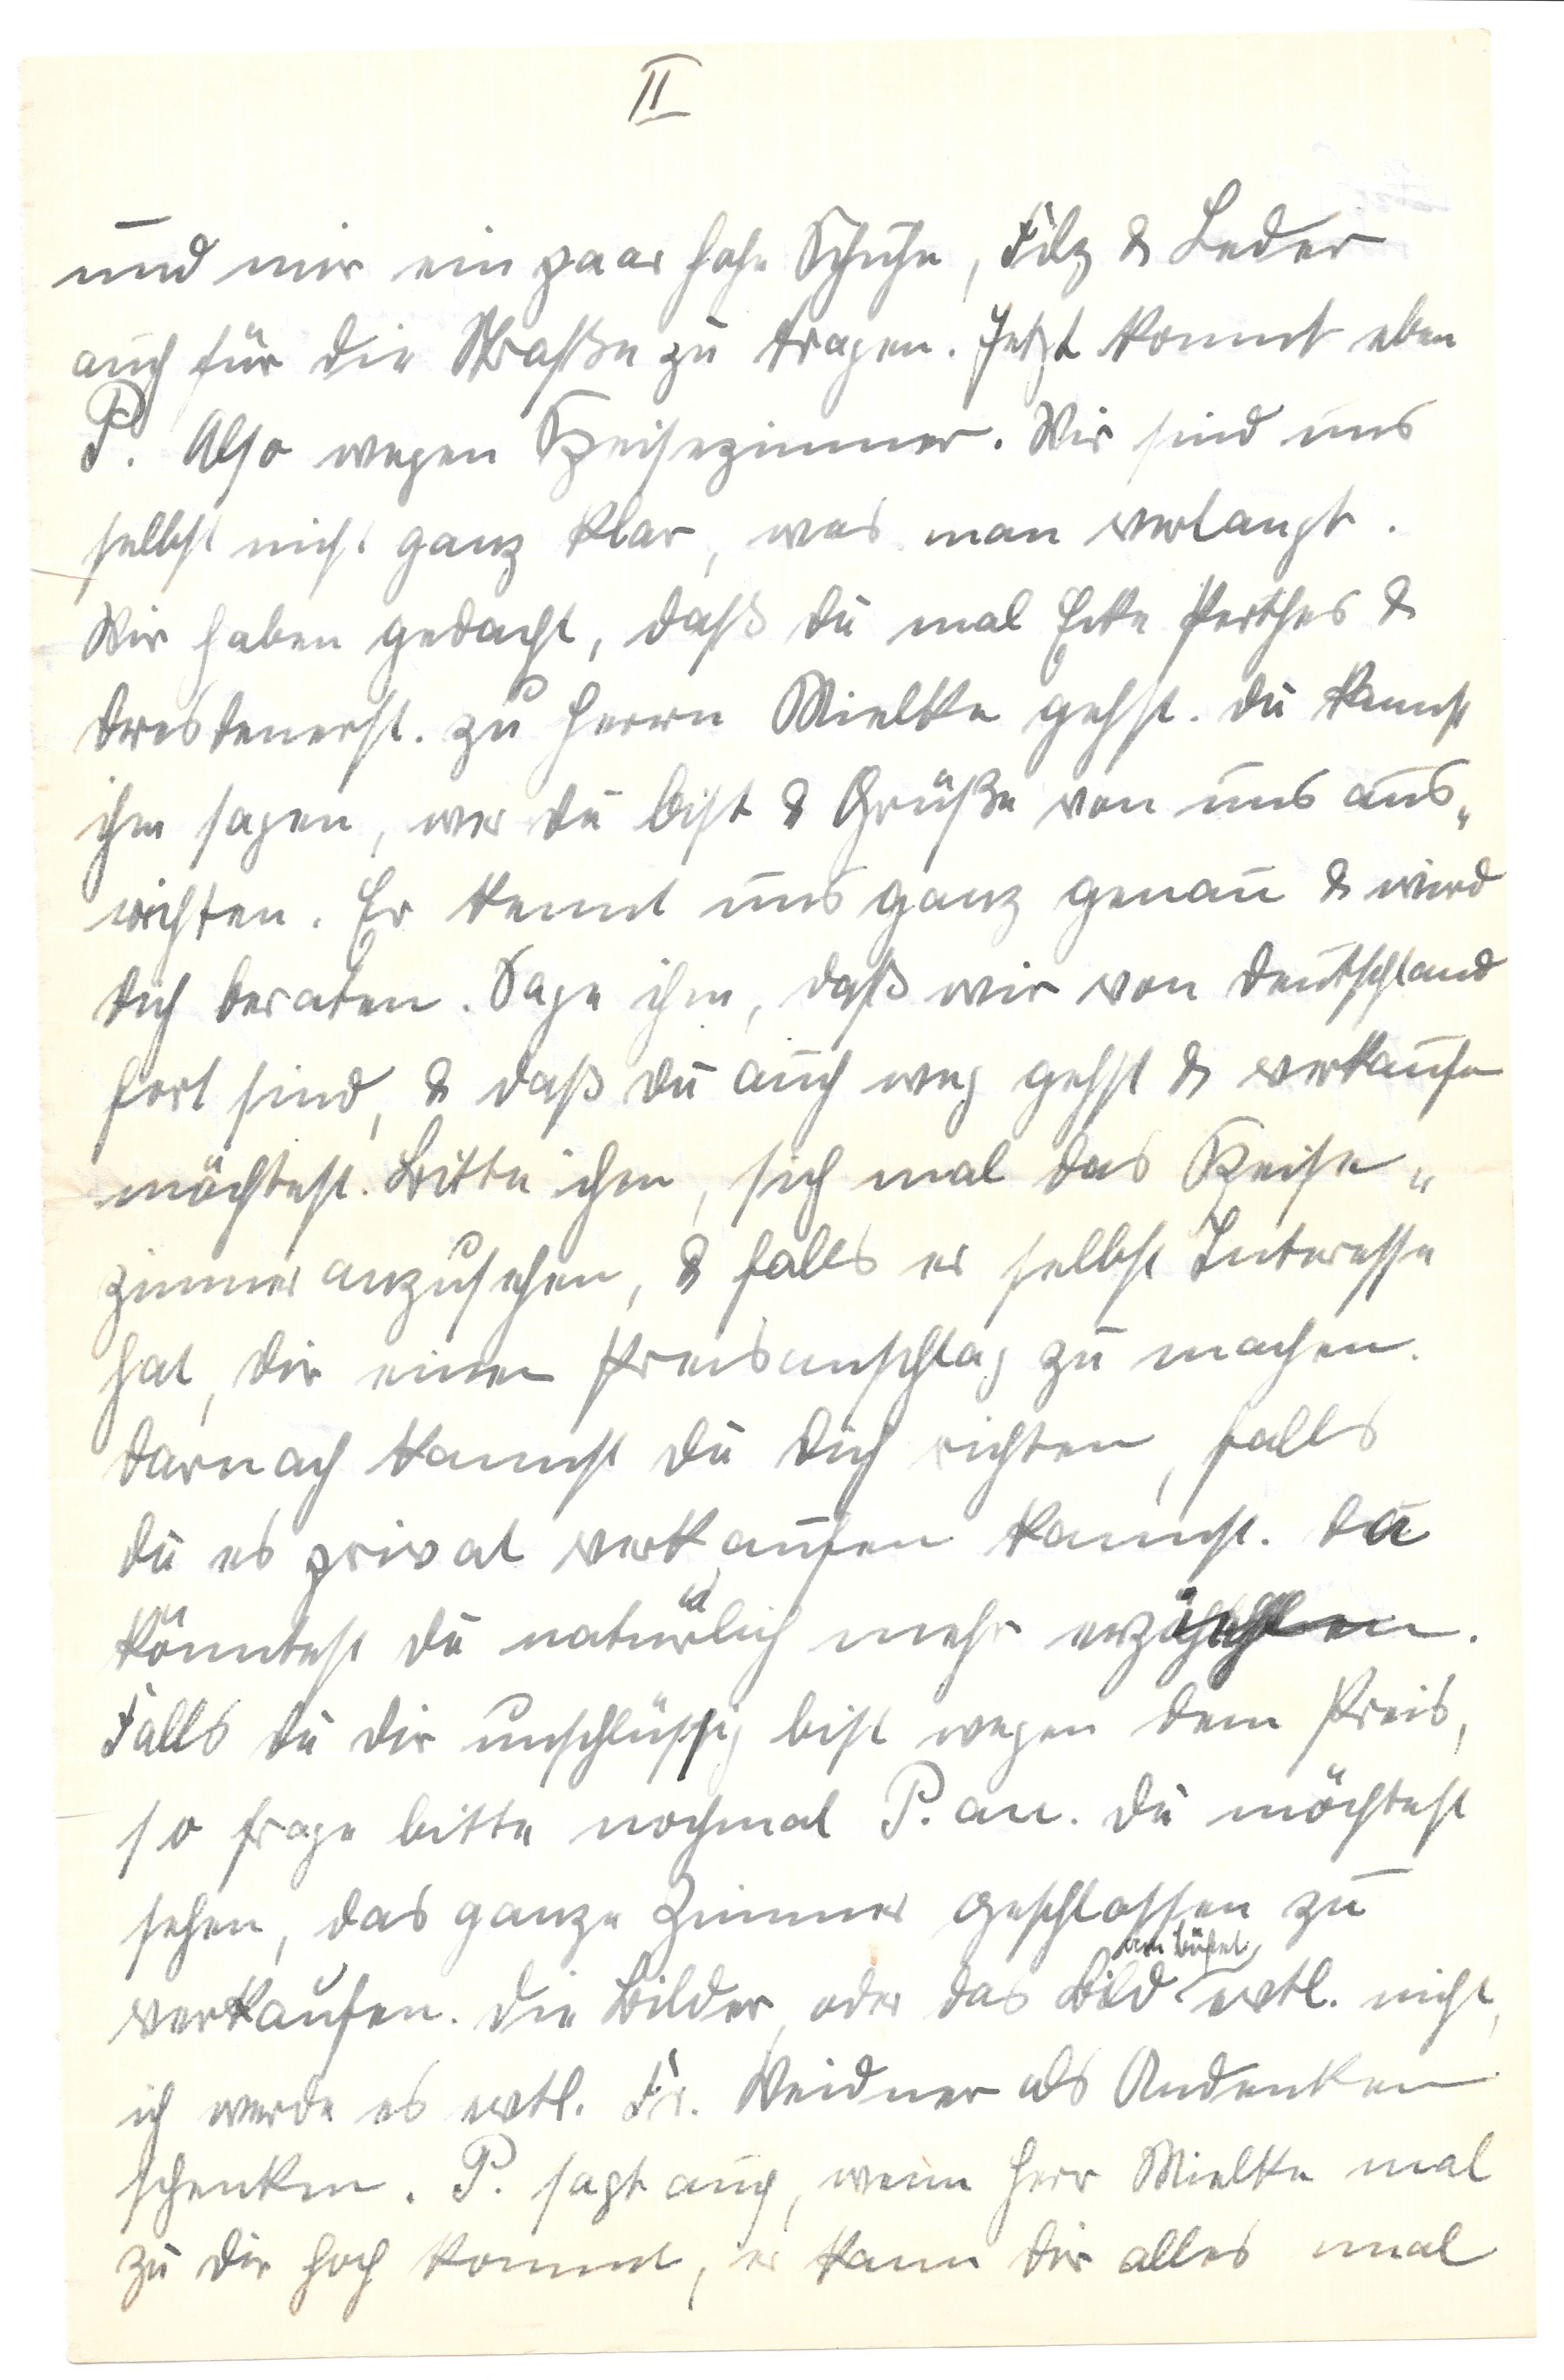 II
und mir ein paar hohe Schuhe, Filz & Leder
auch für die Straße zu tragen. Jetzt kommt eben
P. Also wegen Speisezimmer. Wir sind uns
selbst nicht ganz klar, was man verlangt.
Wir haben gedacht, daß du mal Ecke Perthes &
Dresdenerst. zu Herrn Mielke gehst. Du kannst
ihm sagen, wer du bist & Grüße von uns aus-
richten. Er kennt uns ganz genau & wird
dich beraten. Sage ihm, daß wir von Deutschland
fort sind, & daß du auch weg gehst & verkaufen
möchtest. Bitte ihm, sich mal das Speise-
zimmer anzusehen, & falls er selbst Interesse
hat, dir einen Preisanschlag zu machen.
Darnach kannst du dich richten, falls
du es privat verkaufen kannst. Da
könntest du natürlich mehr
Falls du dir unschlüssig bist wegen dem Preis,
so frage bitte nochmal P. an. Du möchtest
sehen, das ganze Zimmer geschlossen zu
am Büfet
verkaufen. Die Bilder, oder das Bild evtl. nicht,
ich werde es evtl. Fr. Weidner als Andenken
schenken. P. sagt auch, wenn Herr Mielke mal
zu dir hoch kommt, er kann dir alles mal